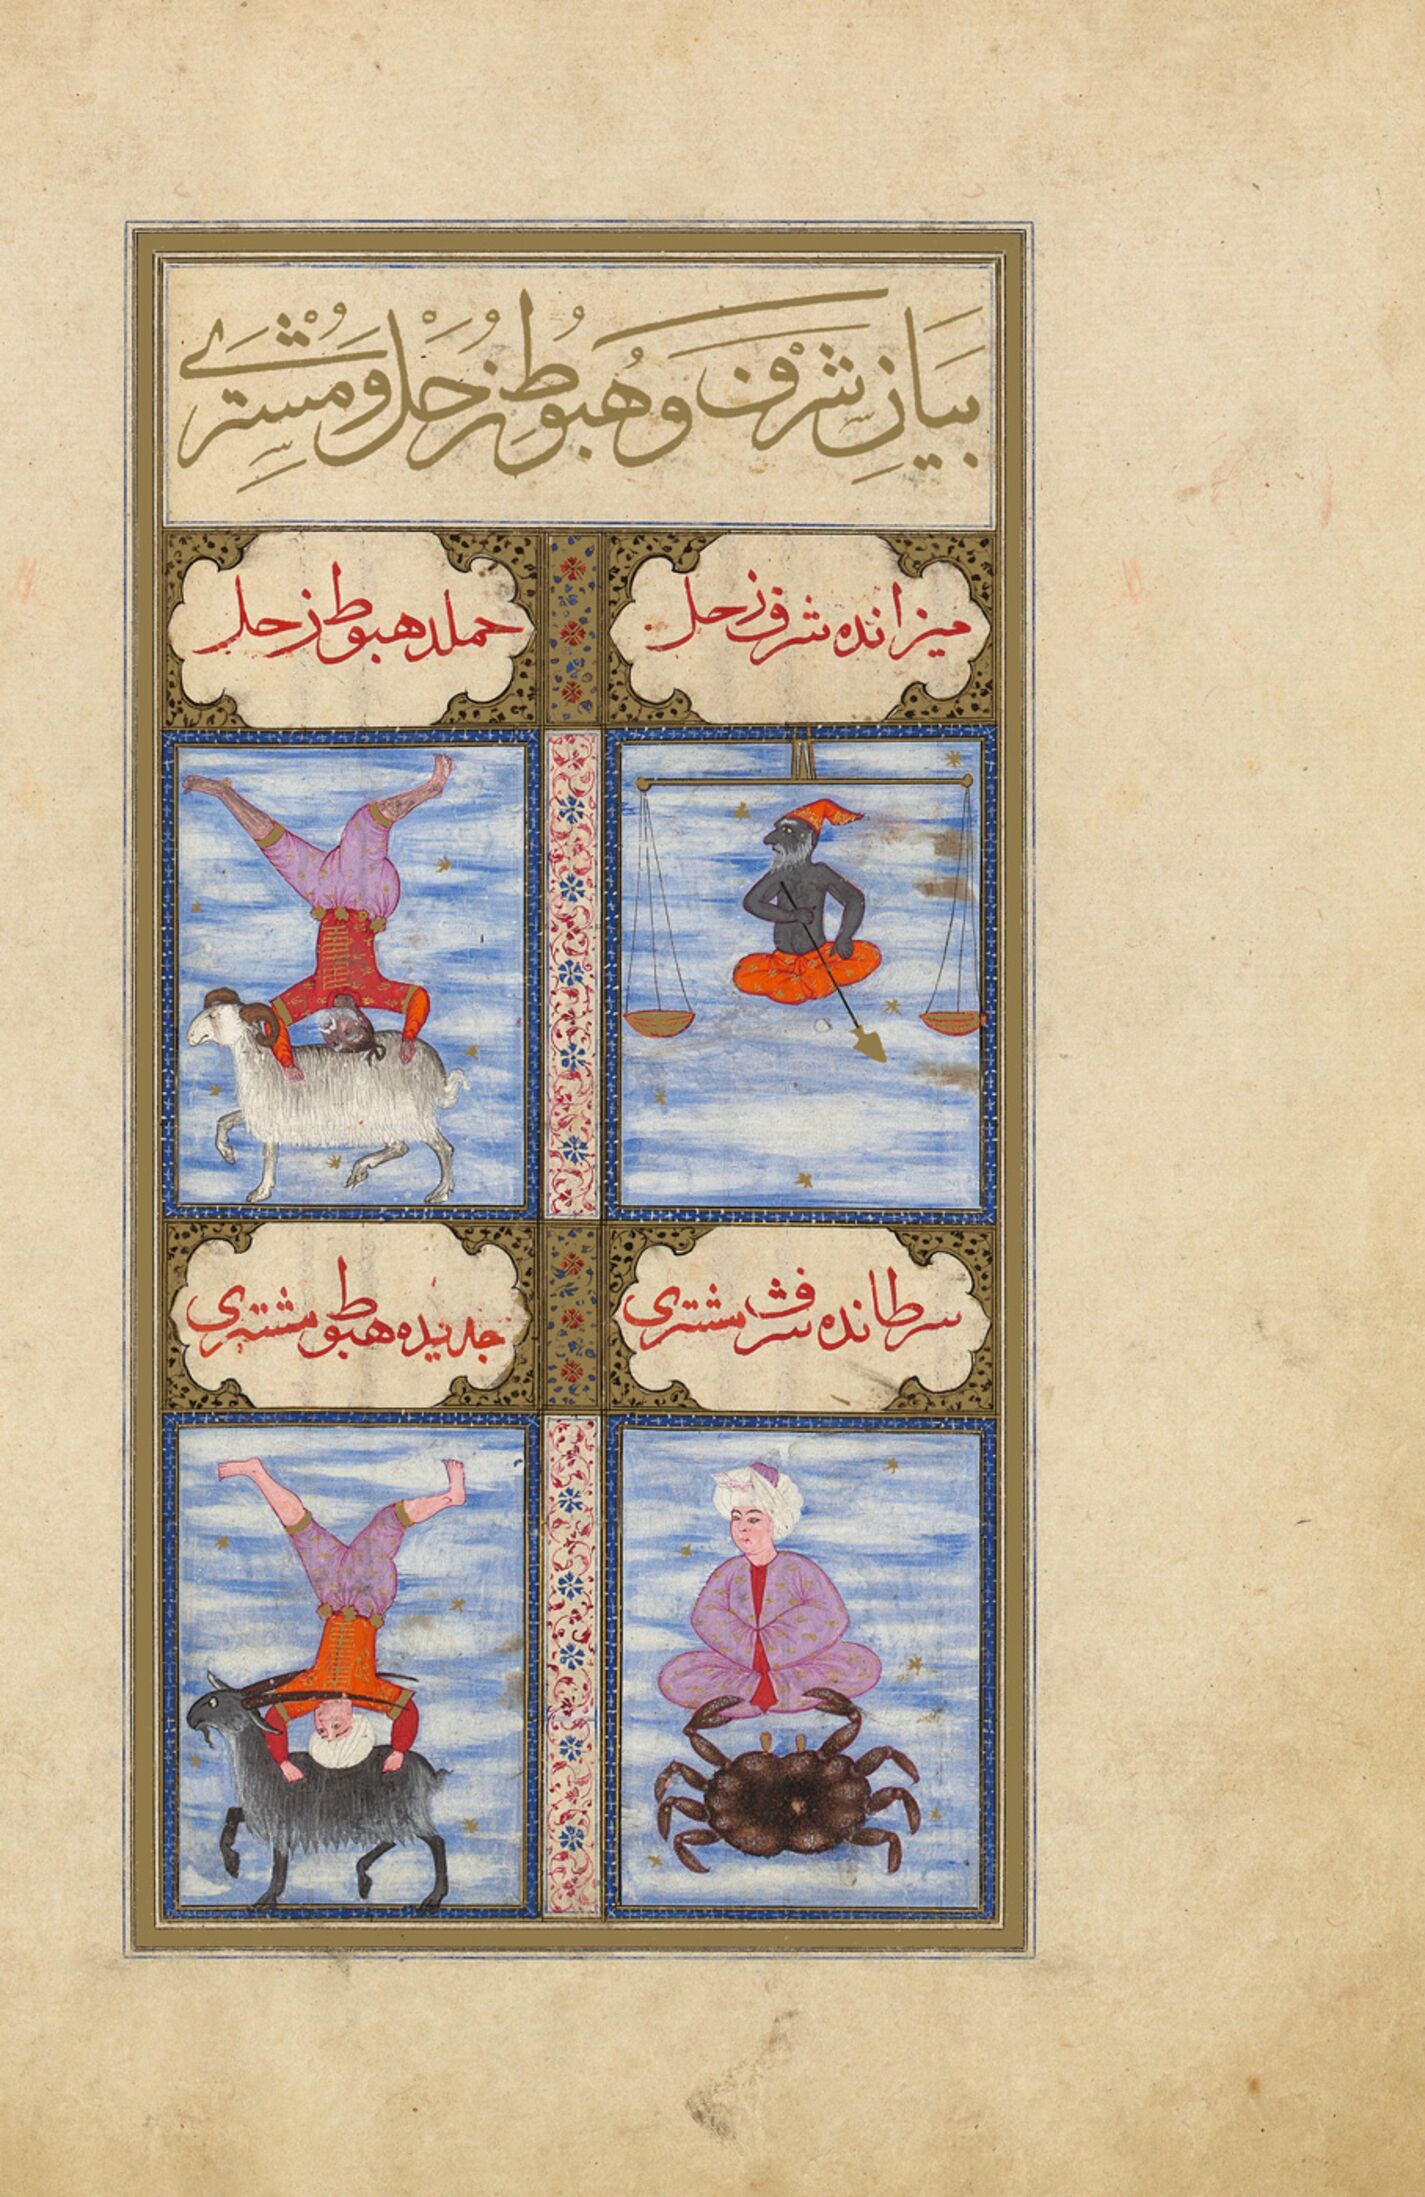 بَيَانِ شَرَفْ وَهُبُوطِ زُحَلْ وَمُشْتَرِي
ميزانده شرف زحل
حملده هبوط زحل
سرطانده شرف مشتری
جدیده هبوط مشتری